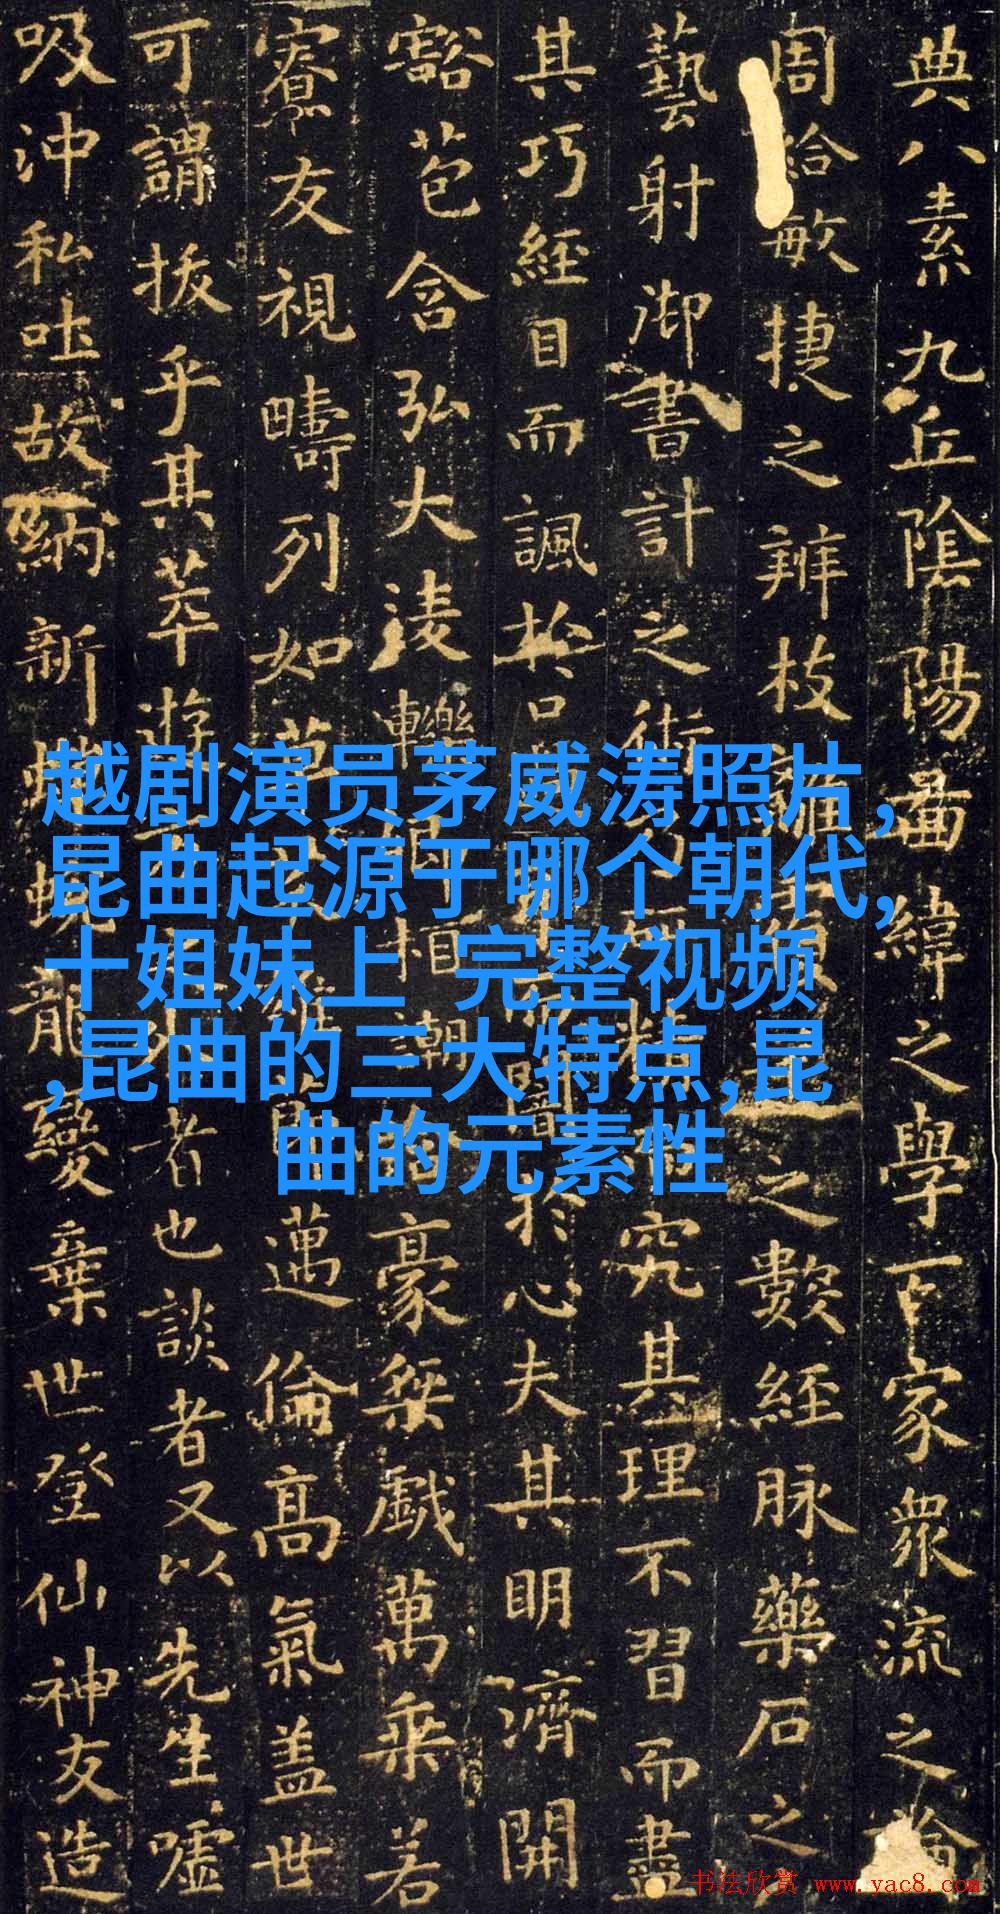 典八素九丘陰陽啚緯之學百家衆流之論
周給敏捷之辨枝之數經脉藥石之
藝射御書計之術究其理不習而盡
其巧經目而諷於口闇於心夫其明濟開
豁苞含弘大淩轢相謿豪桀戲萬乘若
寮友視疇列如草邁倫高氣盖世
可謂拔乎其萃遊者也談者又以先生噓
吸沖和吐故納新蛻龍變棄世登仙神友造
越剧演员茅威涛照片,
昆曲起源于哪个朝代,
十姐妹上 完整视频
,昆曲的三大特点,昆
曲的元素性
书法欣赏 www.yac8.com